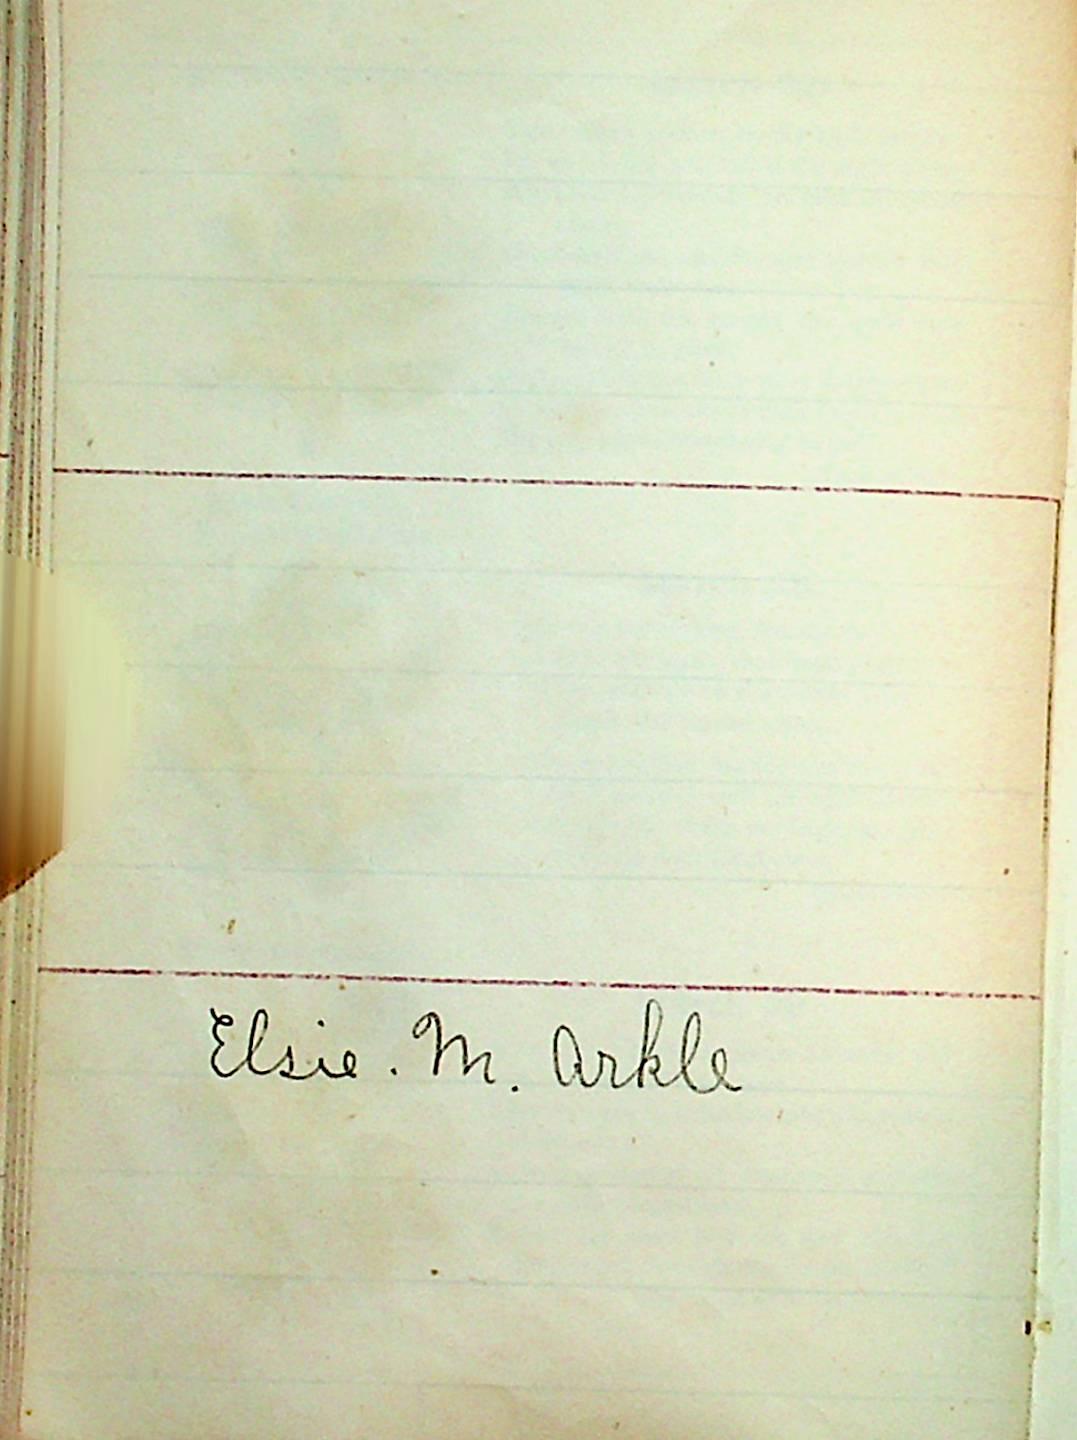 Elsie. M. Arkle